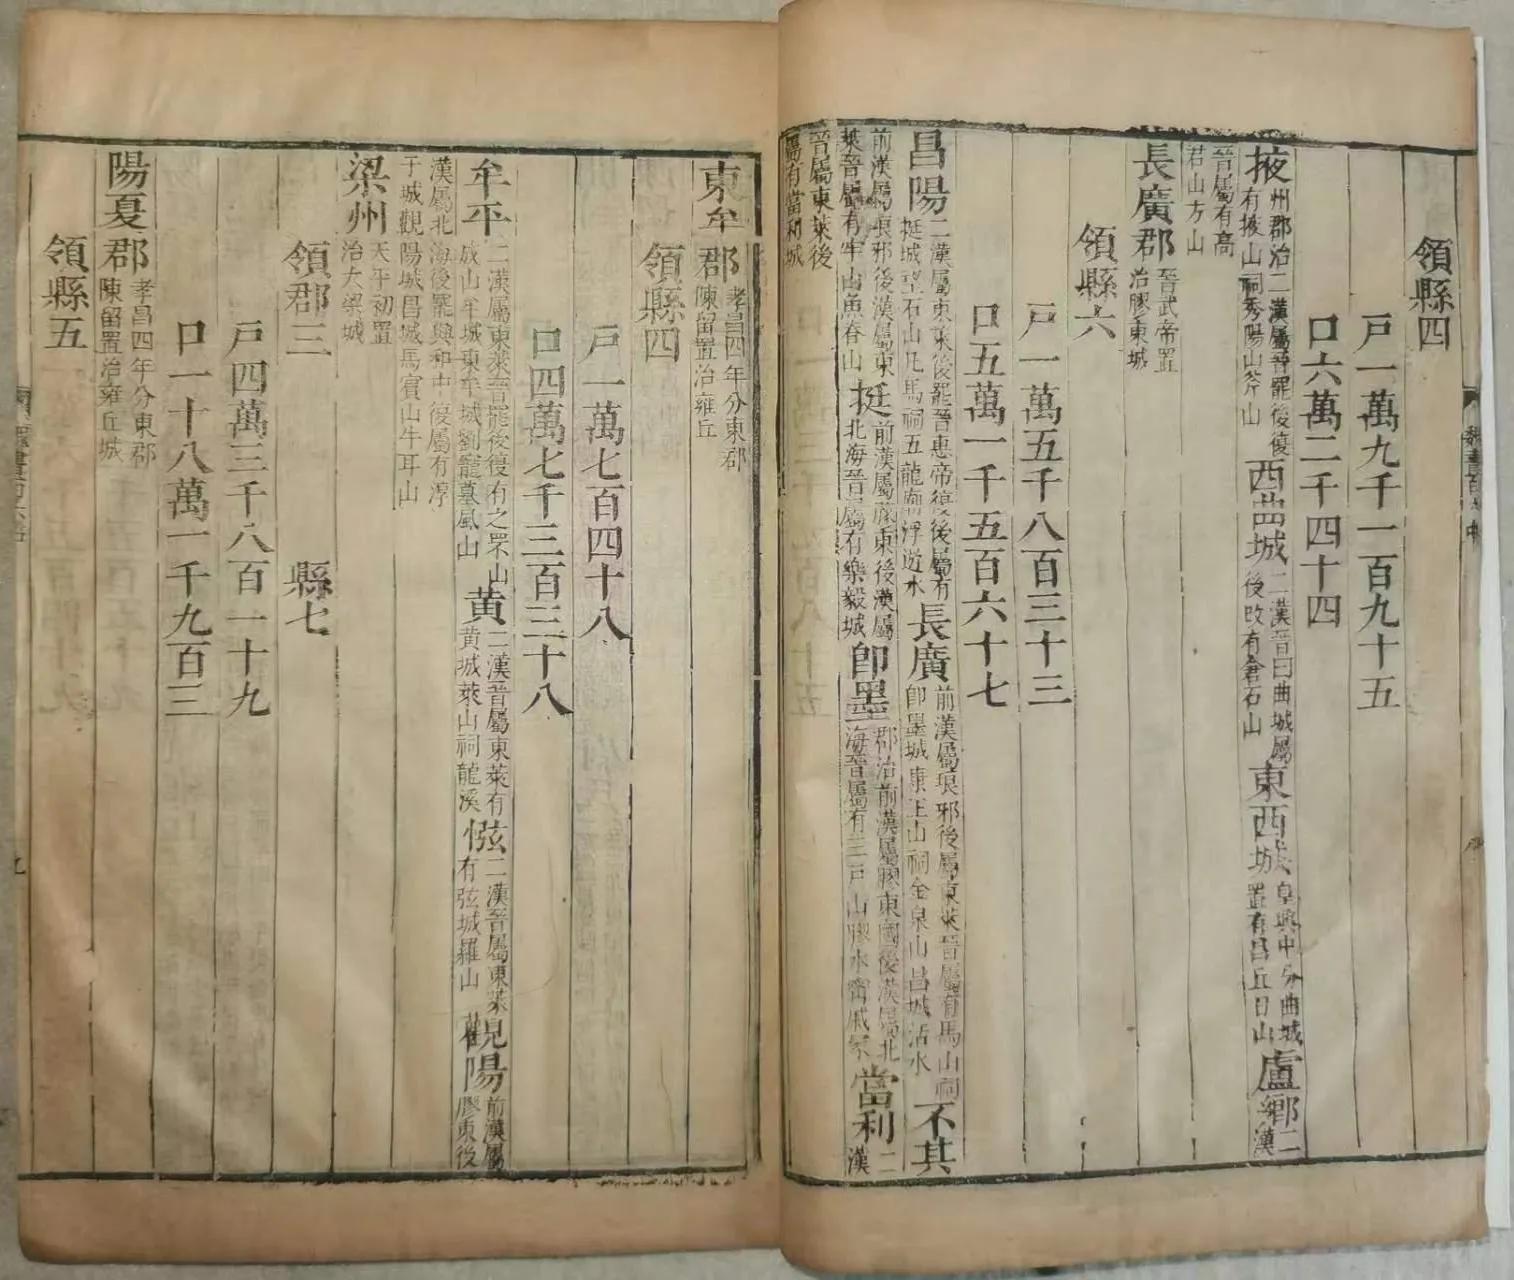 魏書百六中
領縣四
戶一萬九千一百九十五
口六萬二千四十四
掖州郡治二漢屬晉罷後復有掖山祠秀陽山斧山西曲城二漢晉曰曲城屬後改有倉石山東西城皇興中分曲城置有昌丘日山盧鄉二漢
晉屬有高君山方山
長廣郡晉武帝置治膠東城
領縣六
戶一萬五千八百三十三
口五萬一千五百六十七
昌陽二漢屬東萊後罷晉惠帝復後屬有挺城望石山凡馬祠五龍廟浮遊水長廣前漢屬琅邪後屬東萊晉屬有馬山祠即墨城康王山祠金泉山昌城沽水不其
前漢屬琅邪後漢屬東萊晉屬有牢山魚脊山挺前漢屬膠東後漢屬北海晉屬有樂毅城即墨郡治前漢屬膠東國後漢屬北海晉屬有三戶山膠水甯戚冢當利二漢
晉屬東萊後屬有當利城
東牟郡孝昌四年分東郡陳留置治雍丘
領縣四
戶一萬七百四十八
口四萬七千三百三十八
牟平二漢屬東萊晉罷後復有之罘山成山牟城東牟城劉寵墓風山黃二漢晉屬東萊有黃城萊山祠龍溪惤二漢晉屬東萊有弦城羅山觀陽前漢屬膠東後
漢屬北海後罷興和中復屬有淳于城觀陽城昌城馬賓山牛耳山
梁州天平初置治大梁城
領郡三 縣七
戶四萬三千八百一十九
口一十八萬一千九百三
陽夏郡孝昌四年分東郡陳留置治雍丘城
領縣五